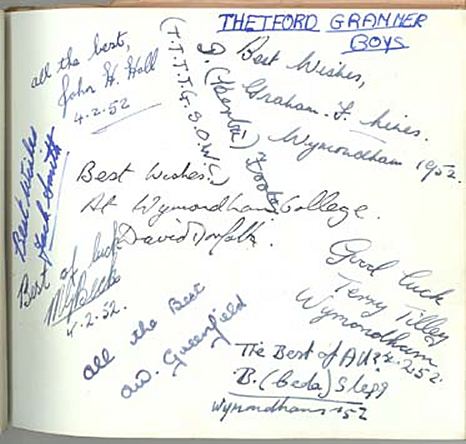 THETFORD GRAMMER
BOYS
all the best,
John H. Hall
4.2.52
(T.T.T.G.S.O.W.S.)
Best Wishes,
Graham. F.
Wymondham 1952.
Best Wishes
Jack Smith
Best Wishes.
At Wymondham College.
David
Best of luck
4.2.52.
all the Best
aw. Greenfield
Good luck
Terry Tilley
Wymondham
4.2.52
The Best of All
B. (Beda) Slegg
Wymondham '52